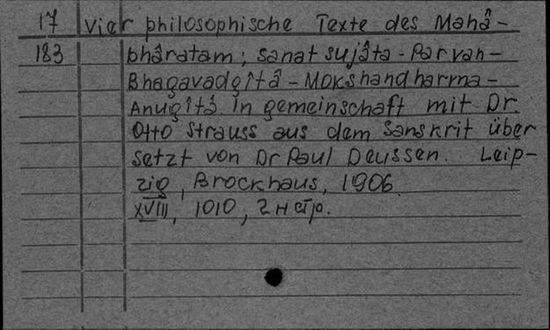 17 Vier philosophische Texte des Mahâ-
183 bhâratam; Sanatsujâta-Parvan-
Bhagavadgîtâ-Mokshandharma-
Anugîtâ in gemeinschaft mit Dr
Otto Strauss aus dem Sanskrit über
setzt von Dr Paul Deussen. Leip-
zig, Brockhaus, 1906.
XVIII, 1010, 2 нстр.